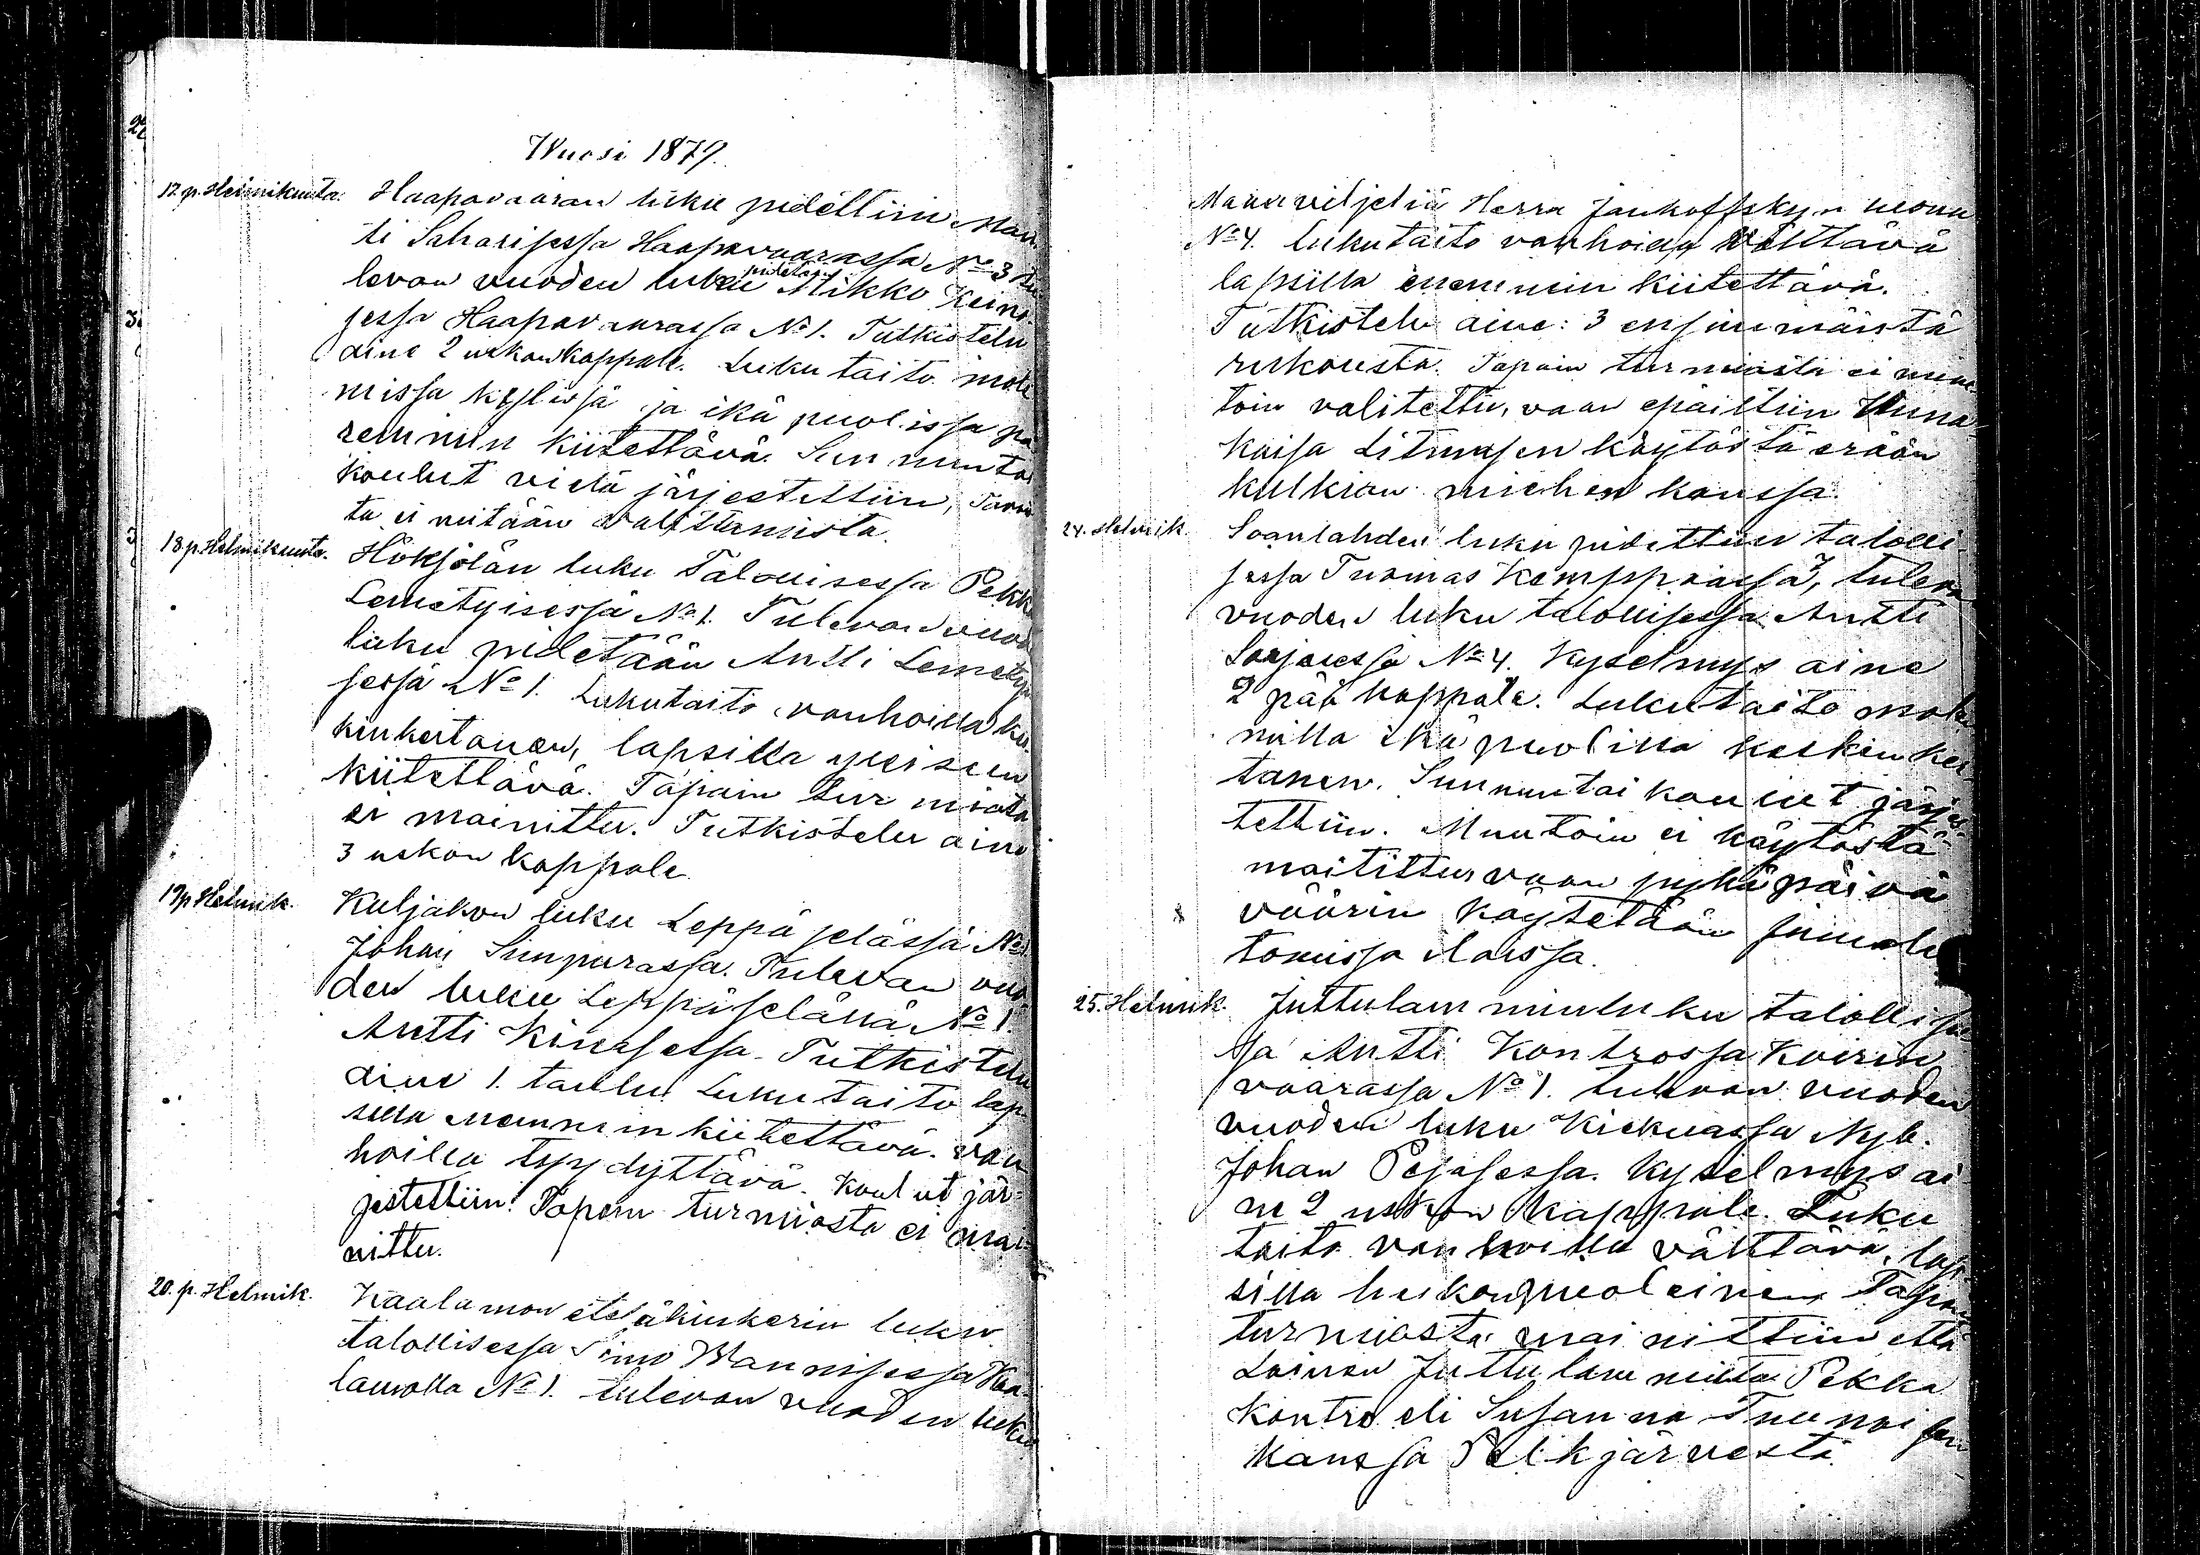 Wuosi 1879.
17. p. Helmikuuta. Haapavaaran luku pidettiin Mar
ti Saharisessa Haapavaarassa No 3
levan vuoden luku pidetään Mikko Keino
sessa Haapavaarassa No 1. Tutkistelu
aine 2 uskonkappale. Lukutaito mole
missa kylissä ja ikä puolissa pa
remmin kiitettävä. Sunnunta
koulut vielä järjestettiin,
ta ei mitään valittamista.
18 p. Helmikuuta. Hökjölän luku Talollisessa Pekk
Lemetyisessä No 1. Tulevan vuod
luku pidetään Antti Lemety
sessä No 1. Lukutaito vanhoilla kes
kinkertanen, lapsilla yleiseen
kiitettävä. Tapain turmiota
ei mainittu. Tutkistelu aine
3 uskon kappale
19 p Helmik. Kuljakon luku Leppäselässä No
Johan Simpurassa. Tulevan vuo
den luku Leppäselässä No 1.
Antti Kinasessa. Tutkistelu
aine 1. taulu. Lukutaito lap
silla enemmin kiitettävä. van
hoilla tyydyttävä. Koulut jär-
jestettiin. Tapain turmiosta ei mai
nittu.
20. p. Helmik. Kaalamon eteläkinkerin luku
talollisessa Simo Wannisessa Kaa-
lamolla No 1. tulevan vuoden luku
Maanviljeliä Herra Jankoffskyn
No 4. lukutaito vanhoilla välttävä
lapsilla enemmin kiitettävä.
Tutkistelu aine: 3 ensimmäistä
rukousta. Tapain turmiosta ei muu
toin valitettu, vaan epäiltiin Anna
Kaisa Litmasen käytöstä erään
kulkian miehen kanssa.
24. Helmik. Soanlahden luku pidettiin talolli
sessa Tuomas Kemppaassa 7, tuleva
vuoden luku talollisessa Antti
Sarjaessa No 4. Kyselmys aine
2 pää kappale. Lukutaito mole
milla ikä puolilla keskinker
tanen. Sunnuntai koulut järjes-
tettiin. Muutoin ei käytöstä
maitittu vaan pyhäpäivä
väärin käytetään jumala
tomissa iloissa.
25. Helmik. Juttulammin luku talollises
sa Antti Kontrossa Koirin
vaarassa No 1. tulevan vuoden
vuoden luku Kiekuassa Nyb.
Johan Pesasessa. Kyselmys ai
ne 2 uskon kappale. Luku
taito vanhoilla välttävä, lap
silla huikonpuoleinen Tapain
turmiosta mainittiin että
Loinen Juttulammilta Pekka
Kontro eli Susanna Tuunaisen
kanssa Pälkjärvestä